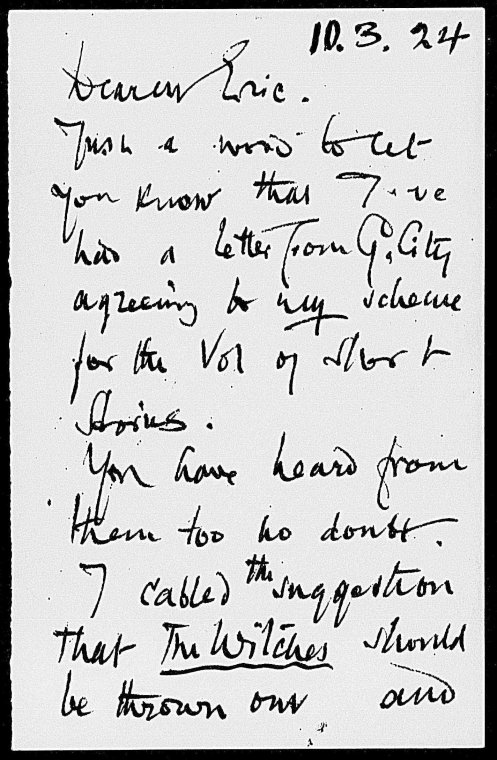 10.3.24
Dearest Eric.
Just a word to let
you know that I've
had a letter from G. City
agreeing to my scheme
for the Vol of short
Stories.
You have heard from
them too no doubt.
I cabled the suggestion
that The Witches should
be thrown out and